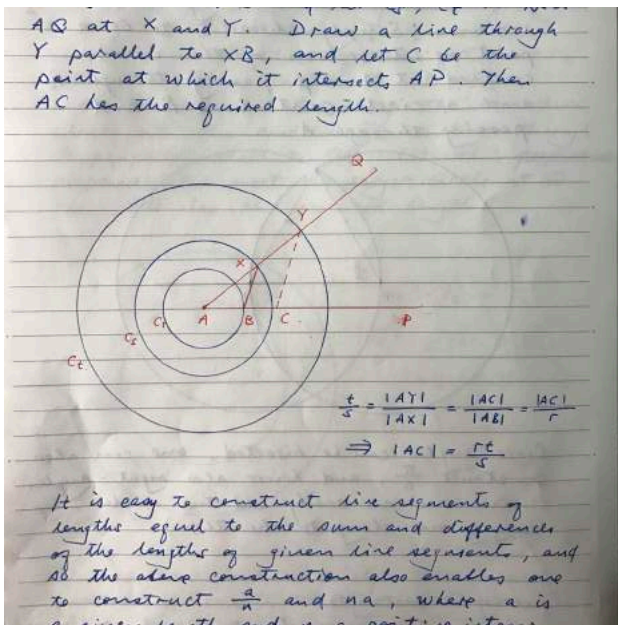 AQ at X and Y. Draw a line through
Y parallel to XB, and let C be the
point at which it intersects AP. Then
AC has the required length.
Q
Y
X
C_r
A
B
C
P
C_s
C_t
t/s = |AY|/|AX| = |AC|/|AB| = |AC|/r
⇒ |AC| = rt/s
It is easy to construct line segments of
lengths equal to the sum and differences
of the lengths of given line segments, and
so the above construction also enables one
to construct a/n and na, where a is